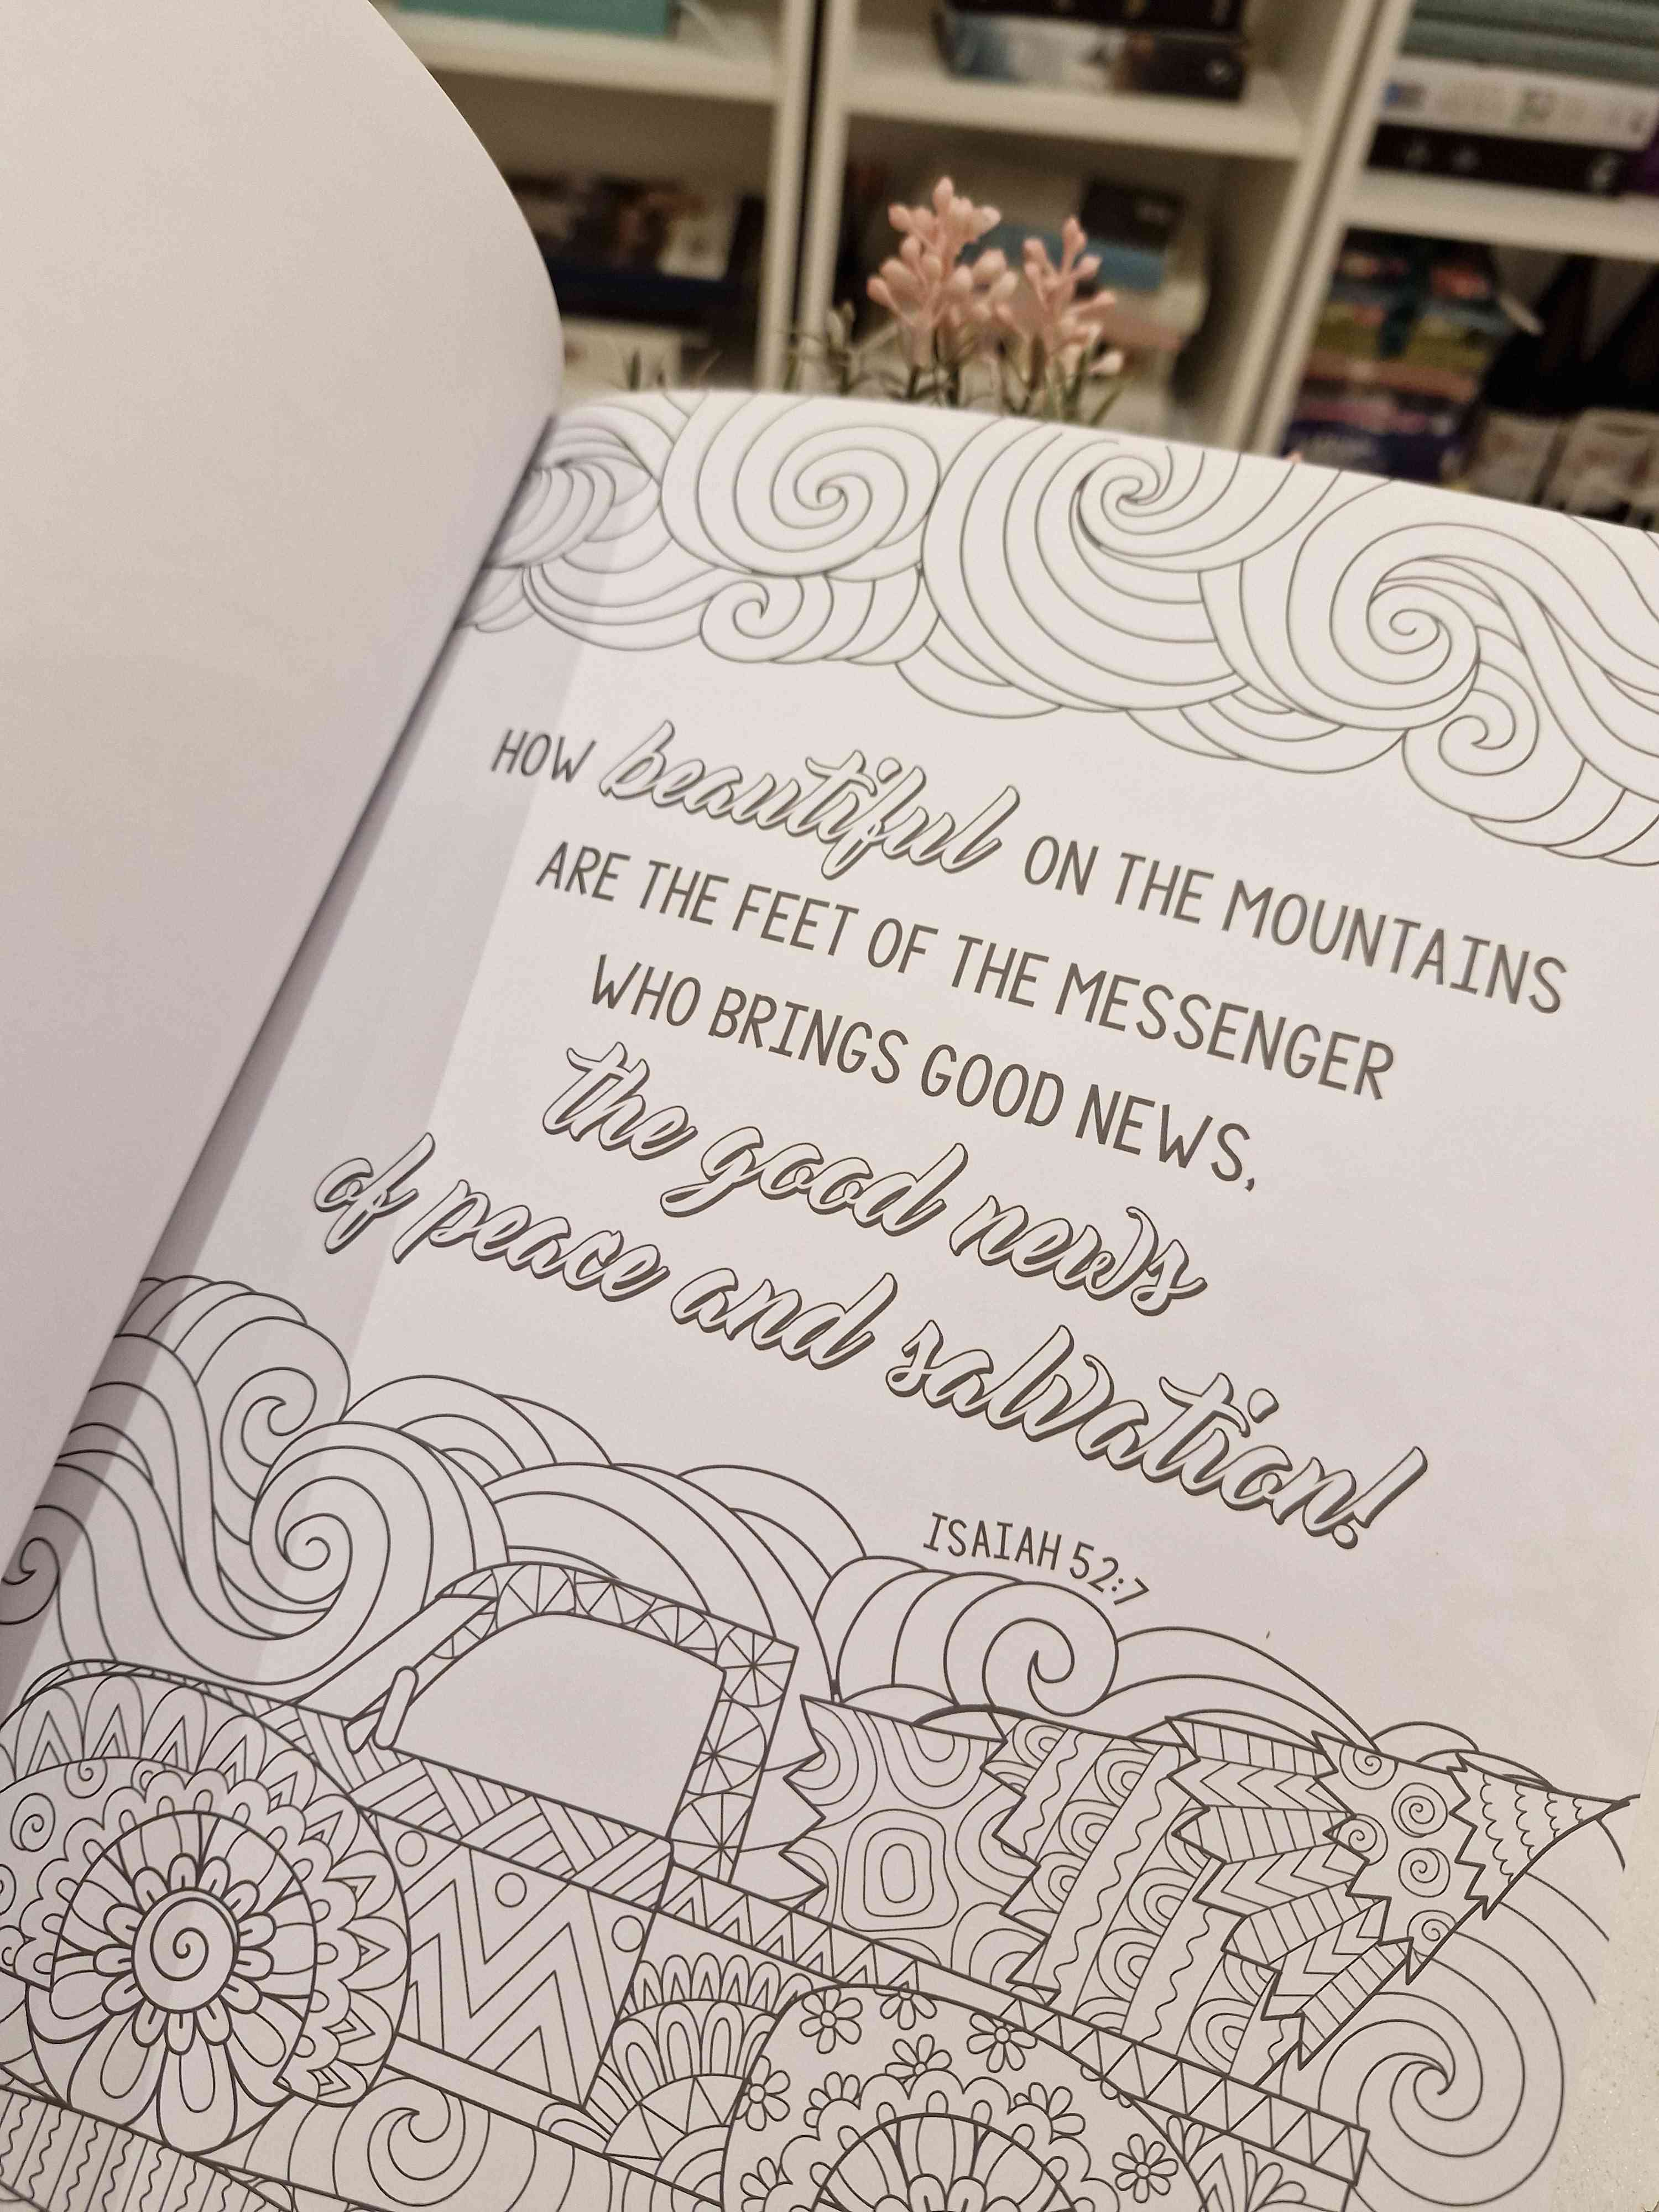 HOW beautiful ON THE MOUNTAINS
ARE THE FEET OF THE MESSENGER
WHO BRINGS GOOD NEWS,
the good news
of peace and salvation!
ISAIAH 52:7